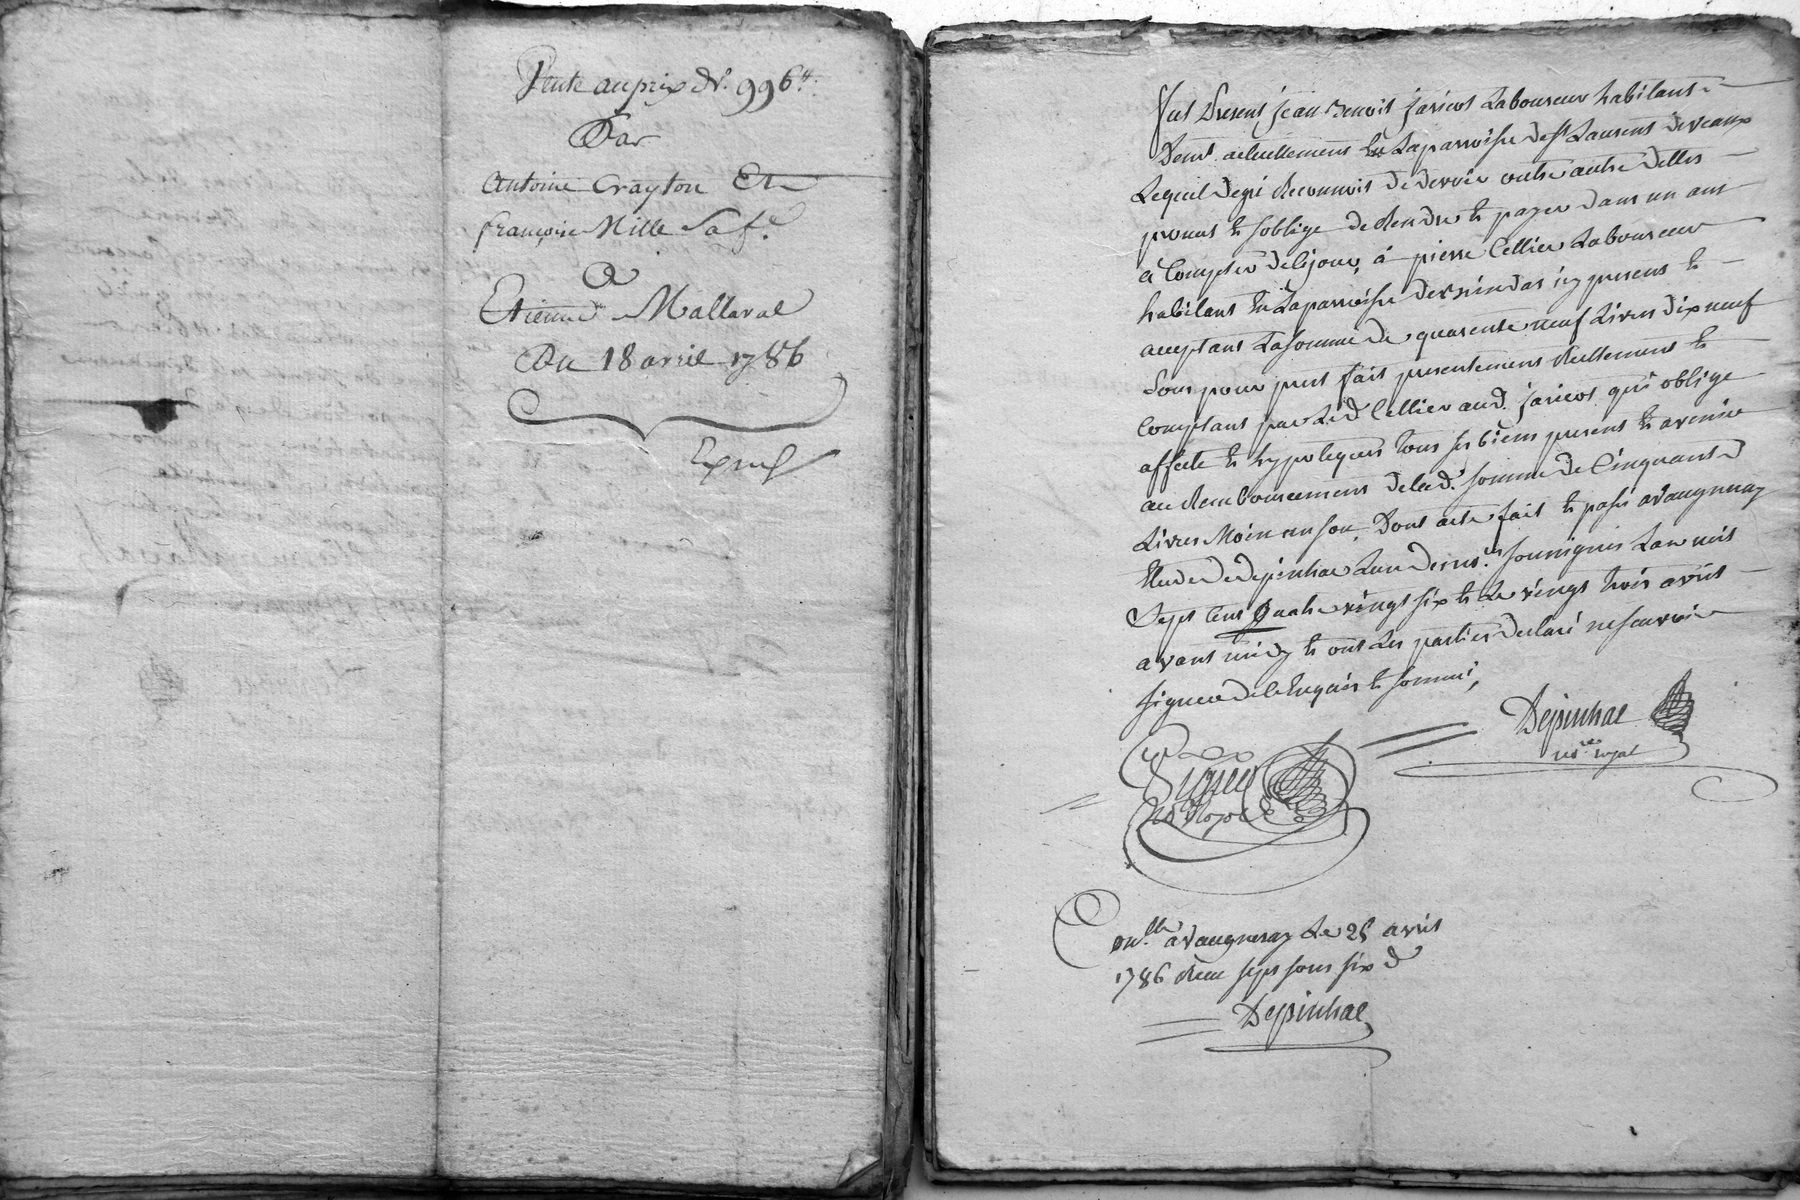 Vente au prix de 996ᵗᵗ
Par
antoine Crayton Et
françoise Mille Sa fᵉ
A
Etienne Mallaval
Du 18 avril 1786
Exped
fut Present jean Benoit jaricot Laboureur habitant
Demt actuellement en Laparroisse de st Laurent devaux
Lequel degré Reconnoit de devoir outre autre dettes
promet et soblige de Rendre et payer dans un ans
a Compter de cejour, á pierre Cellier Laboureur
habitant en Laparroisse de icy present et
acceptant Lasomme de quarente neuf Livres dix neuf
Sous pour pret fait presentement Reellement et
Comptant par Led Cellier aud. jaricot qui oblige
affecte et hypoteques tous ses biens present et avenir
au Remboursement delad. somme de Cinquante
Livres Moin un sou, Dont acte fait et passé avaugneray
Etude de depinhac Lun des nores soussignés Lan mil
Sept Cent Quatre vingt six et Le vingt trois avril
avant midy et ont Les parties declaré nesçavoir
signer de ce Enquis et sommé,
Depinhac
nore royal
Nore Royal
Conlle avaugneray Le 25 avril
1786 Reçu sept sous six d
Depinhac